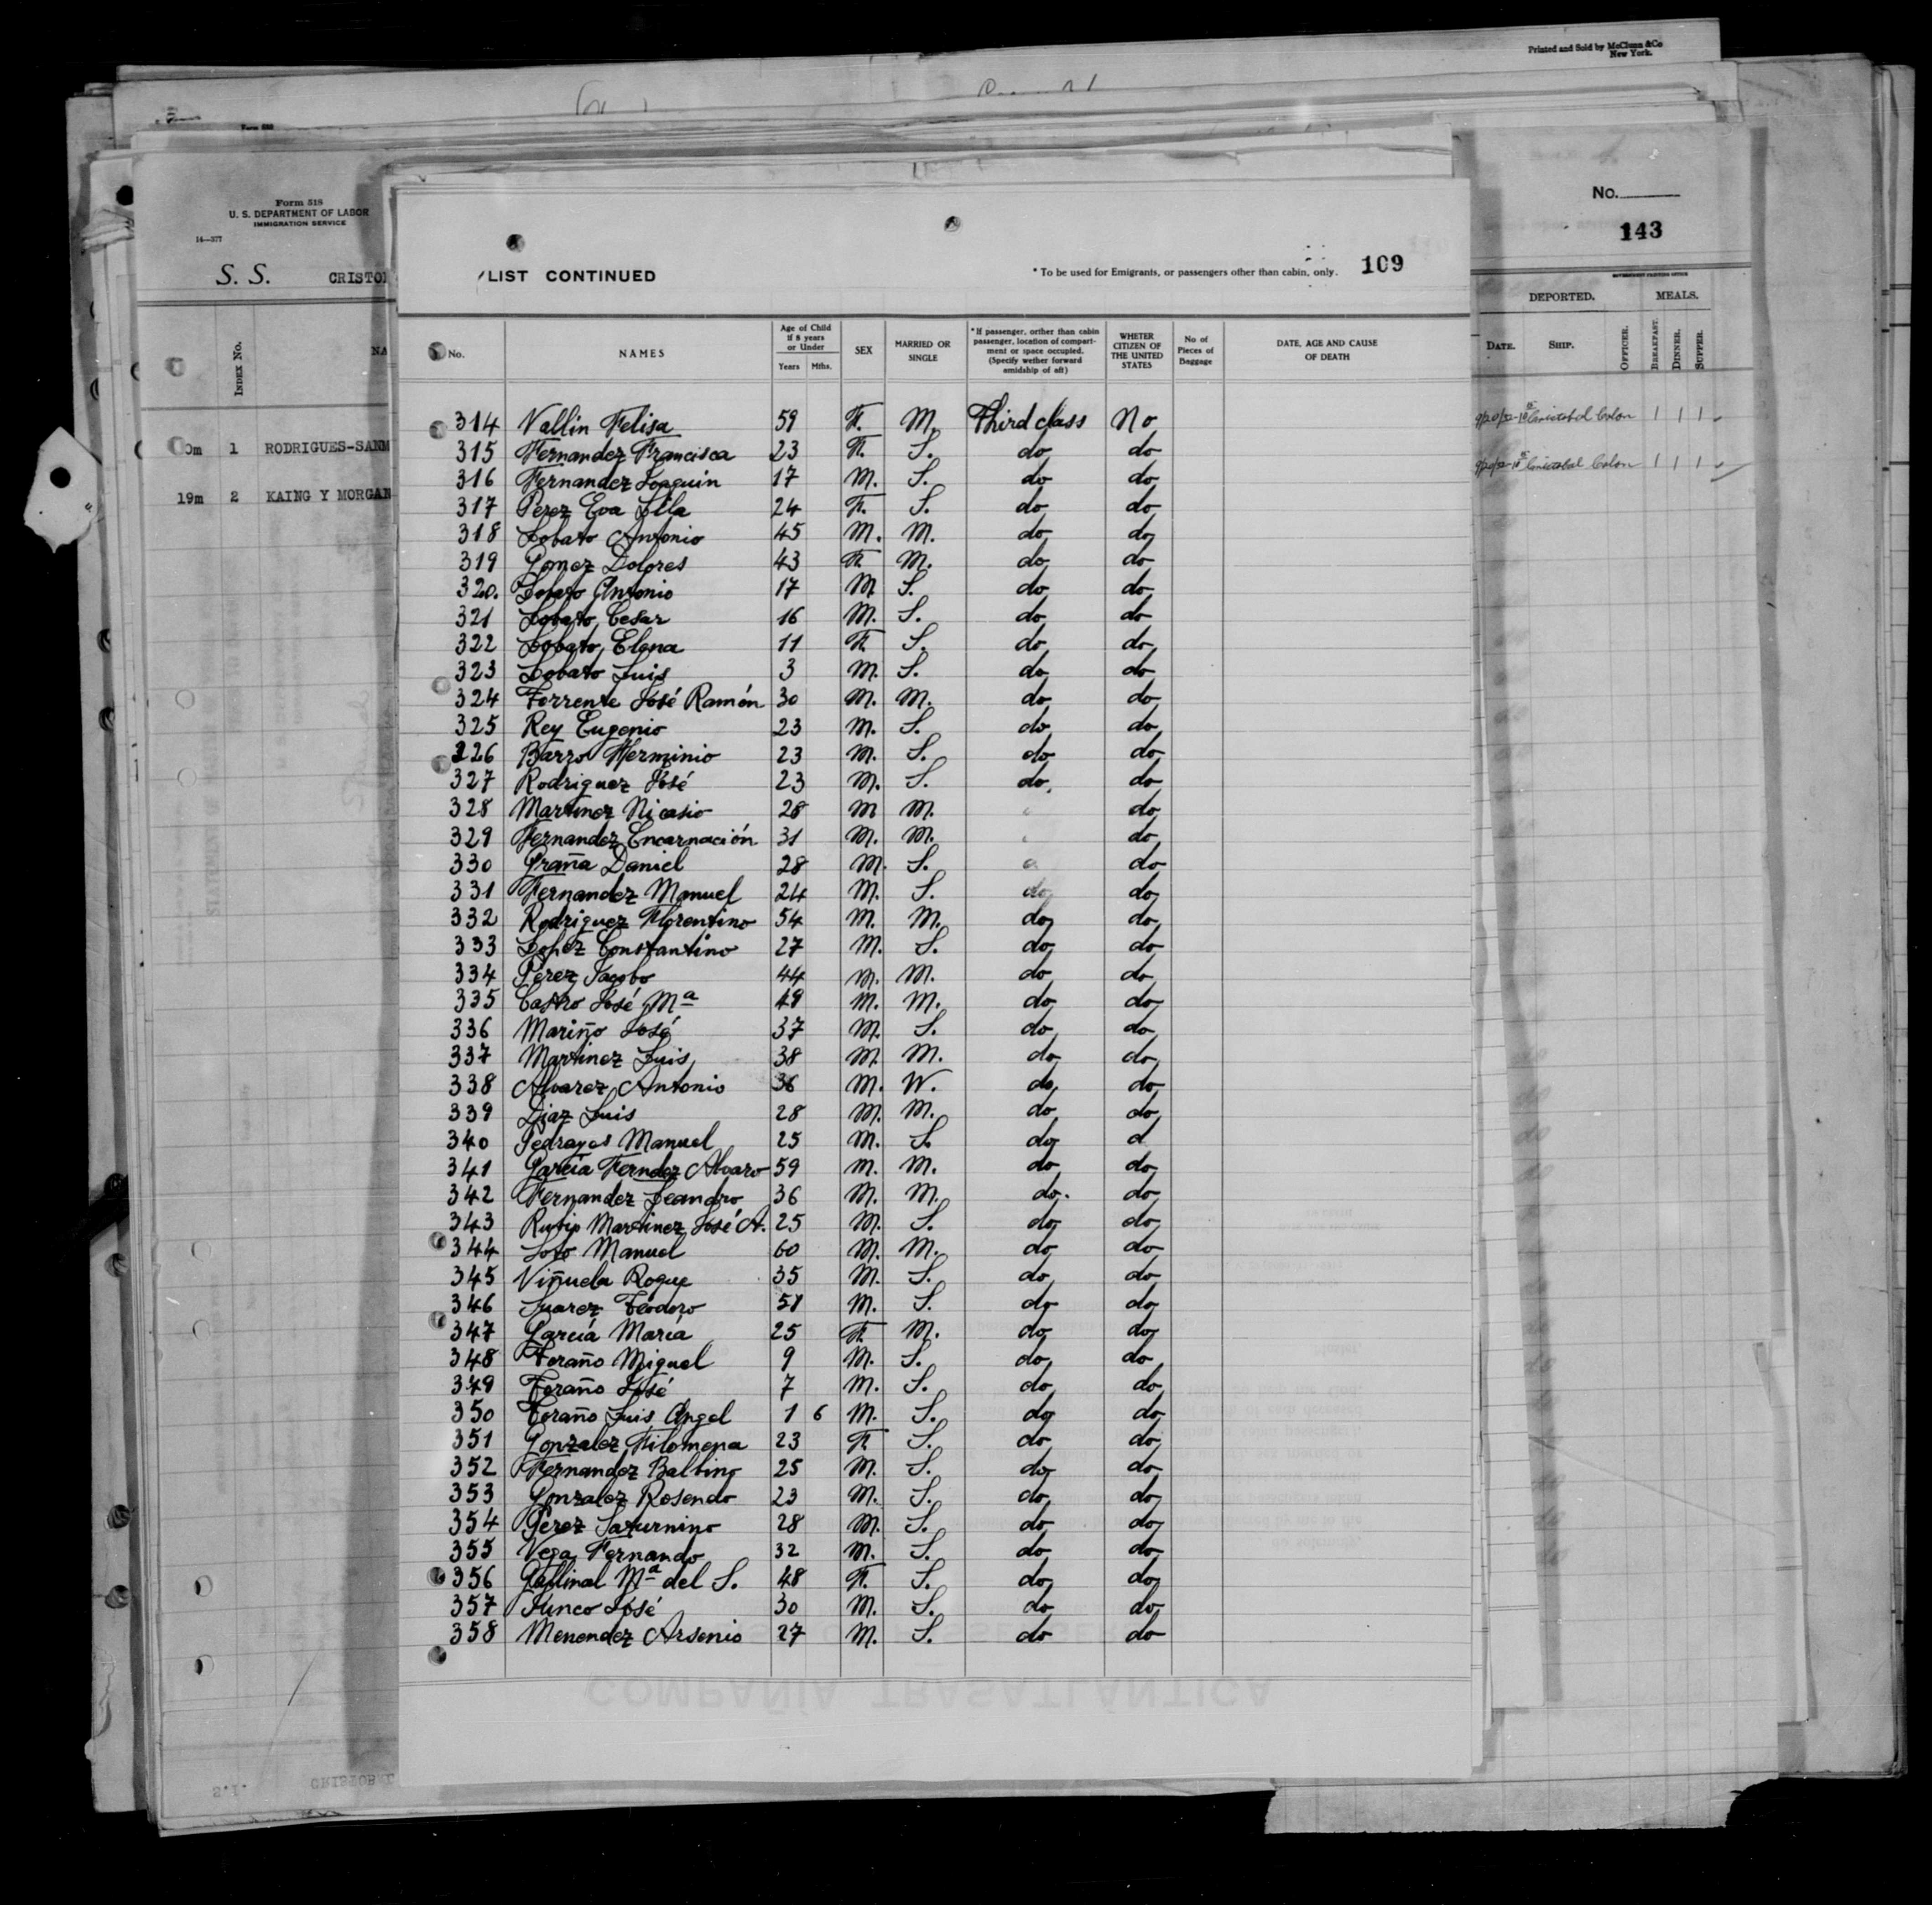 Printed and Sold by McClunn & Co
New York.
Form 518
U. S. DEPARTMENT OF LABOR
IMMIGRATION SERVICE
14—377
S. S. CRISTO
INDEX No.
NA
1 RODRIGUES-SANM
19m 2 KAING Y MORGAN
No.
143
DEPORTED. MEALS.
DATE. SHIP. OFFICER. BREAKFAST. DINNER. SUPPER.
Cristobal Colon 1 1 1
Cristobal Colon 1 1 1
LIST CONTINUED
* To be used for Emigrants, or passengers other than cabin, only. 109
No. NAMES Age of Child If 8 years or Under Years Mths. SEX MARRIED OR SINGLE * If passenger, orther than cabin passenger, location of compartment or space occupied. (Specify wether forward amidship of aft) WHETER CITIZEN OF THE UNITED STATES No of Pieces of Baggage DATE, AGE AND CAUSE OF DEATH
314 Vallin Felisa 59 F. M. Third class No
315 Fernandez Francisca 23 F. S. do do
316 Fernandez Joaquin 17 M. S. do do
317 Perez Eva Lila 24 F. S. do do
318 Lobato Antonio 45 M. M. do do
319 Gomez Dolores 43 F. M. do do
320. Lobato Antonio 17 M S. do do
321 Lobato Cesar 16 M. S. do do
322 Lobato Elena 11 F. S. do do
323 Lobato Luis 3 M. S. do do
324 Torrente José Ramón 30 M. M. do do
325 Rey Eugenio 23 M. S. do do
326 Barro Herminio 23 M. S. do do
327 Rodriguez José 23 M. S. do do
328 Martinez Nicasio 28 M M. do
329 Fernandez Encarnación 31 M. M. do
330 Graña Daniel 28 M. S. do
331 Fernandez Manuel 24 M. S. do do
332 Rodriguez Florentino 54 M. M. do do
333 Lopez Constantino 27 M. S. do do
334 Perez Jacobo 44 M. M. do do
335 Castro José Mª 49 M. M. do do
336 Mariño José 37 M. S. do do
337 Martinez Luis 38 M. M. do do
338 Alvarez Antonio 36 M. W. do do
339 Diaz Luis 28 M. M. do do
340 Pedrayes Manuel 25 M. S. do d
341 García Ferndez Alvaro 59 M. M. do do
342 Fernandez Leandro 36 M. M. do. do
343 Rubio Martinez José A. 25 M. S. do do
344 Soto Manuel 60 M. M. do do
345 Viñuela Roque 35 M. S. do do
346 Suarez Teodoro 51 M. S. do do
347 García María 25 F. M. do do
348 Toraño Miguel 9 M. S. do do
349 Toraño José 7 M. S. do do
350 Toraño Luis Angel 1 6 M. S. do do
351 Gonzalez Filomena 23 F. S. do do
352 Fernandez Balbino 25 M. S. do do
353 Gonzalez Rosendo 23 M. S. do do
354 Perez Saturnino 28 M. S. do do
355 Vega Fernando 32 M. S. do do
356 Gallinal Mª del S. 48 F. S. do do
357 Junco José 30 M. S. do do
358 Menendez Arsenio 27 M. S. do do
COMPAÑÍA TRASATLÁNTICA